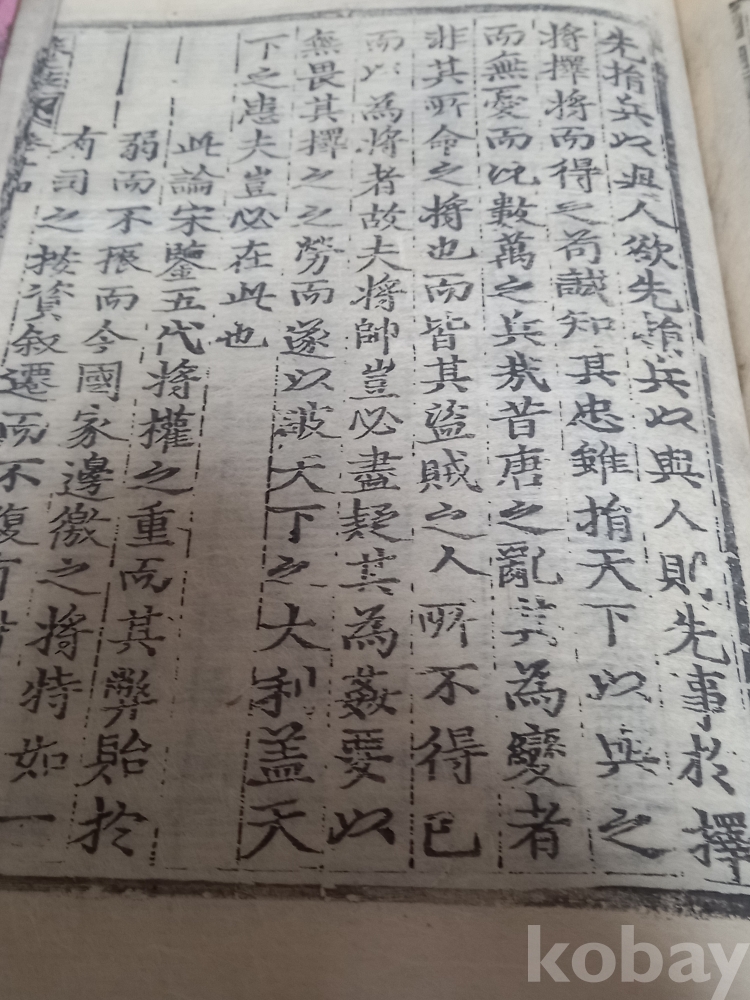 先捐兵以與人欲先損兵以與人則先事於擇
將擇將而得之苟誠知其忠雖捐天下以與之
而無憂而况數萬之兵哉昔唐之亂其為變者
非其所命之將也而皆其盜賊之人所不得已
而以為將者故夫將帥豈必盡疑其為姦要以
無畏其擇之之勞而遂以破天下之大利盖天
下之患夫豈必在此也
此論宋鑒五代將權之重而其弊貽於
弱而不振而今國家邊徼之將特如一
有司之按資叙遷而不復有
kobay